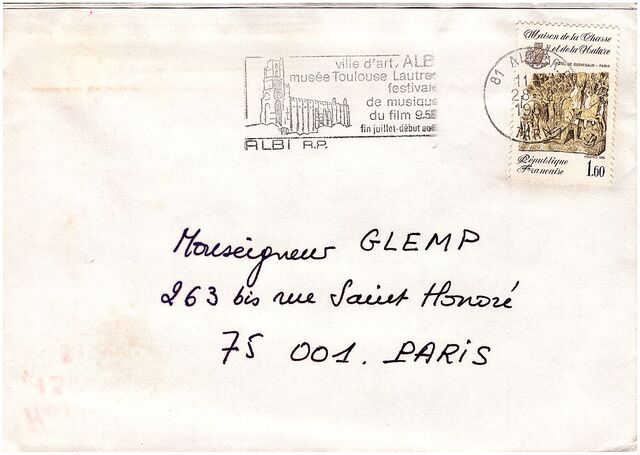 ville d'art. ALB
musée Toulouse Lautre
festival
de musique
du film 9.5
fin juillet-début aoû
ALBI R.P.
Maison de la Chasse
et de la Nature
HOTEL DE GUENEGAUD - PARIS
81 AL
11
28
19
TARN
République
Française
1,60
Monseigneur GLEMP
263 bis rue Saint Honoré
75 001. PARIS